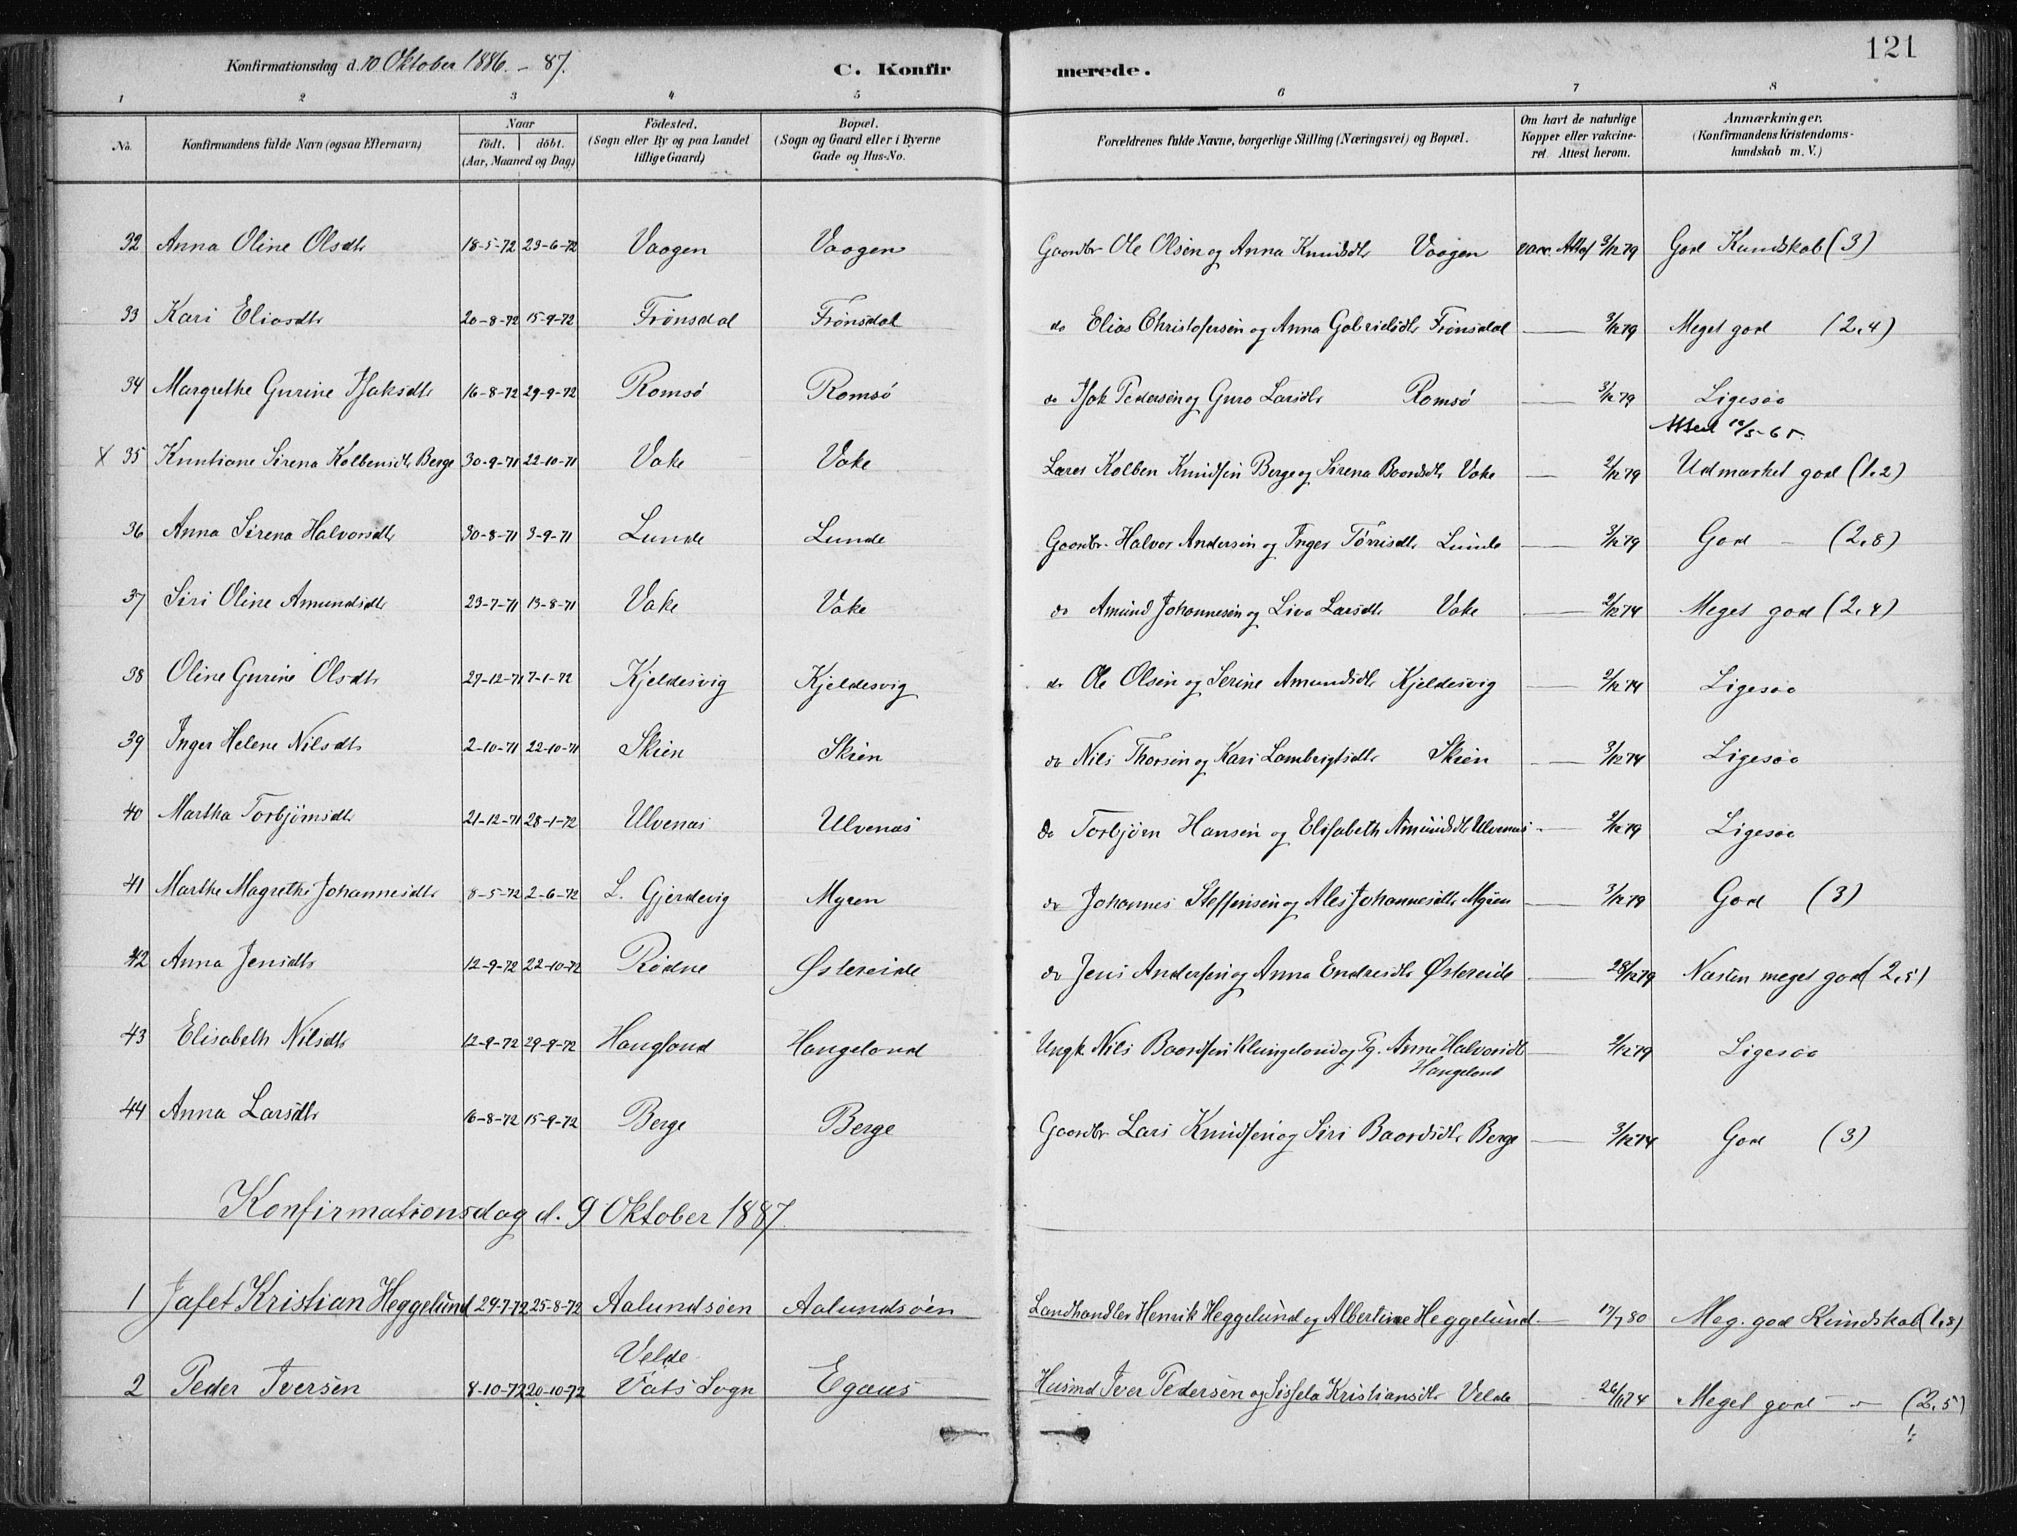 Konfirmationsdag d. 10 Oktober 1886. - 87.
C. Konfir merede.
121
1 2 3 4 5 6 7 8
No. Konfirmandens fulde Navn (ogsaa Efternavn) Naar født. døbt. (Aar, Maaned og Dag) Fødested. (Sogn eller By og paa Landet tillige Gaard) Bopæl. (Sogn og Gaard eller i Byerne Gade og Hus-No. Forældrenes fulde Navne, borgerlige Stilling (Næringsvei) og Bopæl. Om havt de naturlige Kopper eller vakcineret. Attest herom. Anmærkninger. (Konfirmandens Kristendomskundskab m. V.)
32 Anna Oline Olsdtr 18-5-72 23-6-72 Vaagen Vaagen Gaardbr. Ole Olsen og Anna Knudsdtr Vaagen vacc. Attest 3/12 79 God Kundskab (3)
33 Kari Eliasdtr 20-8-72 15-9-72 Frönsdal Frönsdal do Elias Christofersen og Anna Gabrielsdtr Frönsdal — 3/12 79 Meget god (2,4)
34 Margrethe Gurine Isaksdtr 16-8-72 29-9-72 Romsö Romsö do Isak Pedersen og Guro Larsdtr Romsö — 3/12 79 Ligesaa
Attest 12/5-65.
X 35 Knutiane Sirena Kolbensdtr Berge 30-9-71 22-10-71 Vake Vake Lærer Kolben Knudsen Berge og Sirena Baardsdtr Vake — 2/12 79 Udmærket god (1.2)
36 Anna Sirena Halvorsdtr 30-8-71 3-9-71 Lunde Lunde Gaardbr. Halvor Andersen og Inger Törrisdtr Lunde — 3/12 79 God — (2,8)
37 Siri Oline Amundsdtr 23-7-71 13-8-71 Vake Vake do Amund Johannesen og Liva Larsdtr Vake — 2/12 74 Meget god (2.4)
38 Oline Gurine Olsdtr 27-12-71 7-1-72 Kjeldesvig Kjeldesvig do Ole Olsen og Serine Amundsdtr Kjeldesvig — 2/12 74 Ligesaa
39 Inger Helene Nilsdtr 2-10-71 22-10-71 Skien Skien do Nils Thorsen og Kari Lambrigtsdtr Skien — 3/12 74 Ligesaa
40 Martha Torbjörnsdtr 21-12-71 28-1-72 Ulvenæs Ulvenæs do Torbjörn Hansen og Elisabeth Amundsdtr Ulvenæs — 3/12 79 Ligesaa
41 Marthe Magrethe Johannesdtr 8-5-72 2-6-72 L. Gjerdevig Myren do Johannes Steffensen og Ales Johannesdtr Myren — 3/12 79 God (3)
42 Anna Jensdtr 12-9-72 22-10-72 Rödne Östereide do Jens Andersen og Anna Endresdtr Östereide — 28/12 79 Næsten meget god (2,5)
43 Elisabeth Nilsdtr 12-9-72 29-9-72 Haugland Haugeland Ungk. Nils Baardsen Klungeland og Pg. Anne Halvorsdtr — 2/12 79 Ligesaa
Haugeland
44 Anna Larsdtr 16-8-72 15-9-72 Berge Berge Gaardbr. Lars Knudsen og Siri Baardsdtr Berge — 3/12 74 God (3)
Konfirmationsdag d. 9 Oktober 1887.
1 Jafet Kristian Heggelund 29-7-72 25-8-72 Aalundsöen Aalundsöen Landhandler Henrik Heggelund og Albertine Heggelund — 17/7 80 Meg. god Kundskab (1,8)
Velde
2 Peder Iversen 8-10-72 20-10-72 Vats Sogn Egæus Husmd Iver Pedersen og Sissela Kristiansdtr Velde — 26/11 74 Meget god — (2,5)